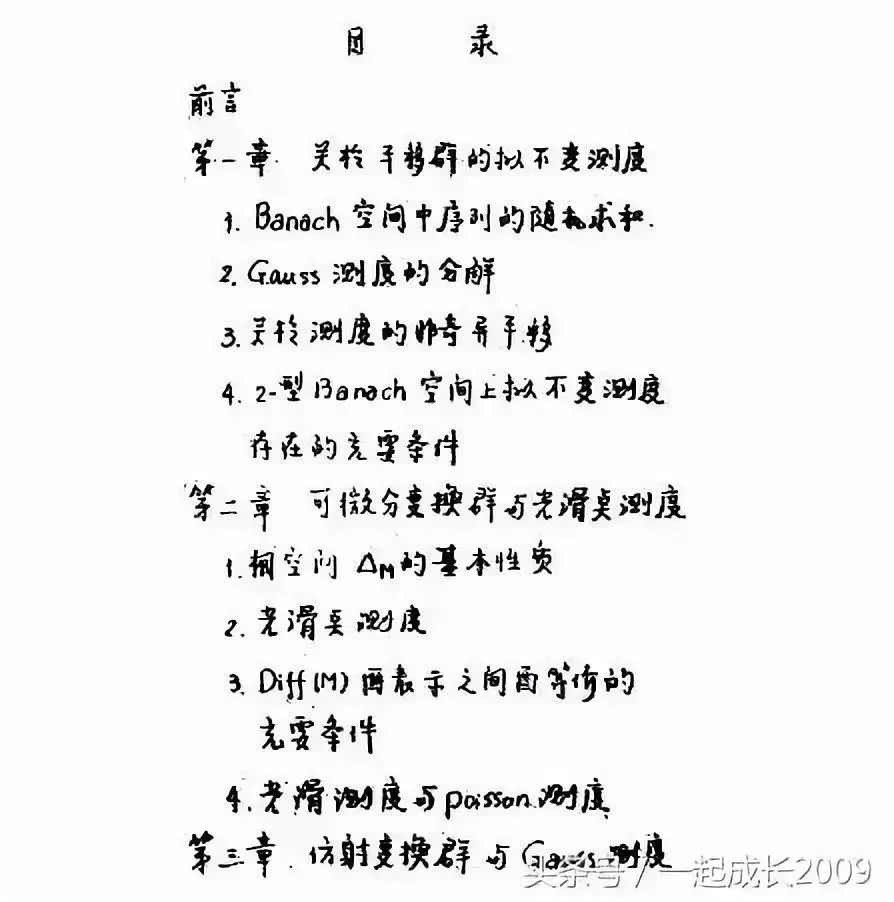 目 录
前言
第一章 关于平移群的拟不变测度
1. Banach 空间中序列的随机求和.
2. Gauss 测度的分解
3. 关于测度的非奇异平移
4. 2-型 Banach 空间上拟不变测度
存在的充要条件
第二章 可微分变换群与光滑点测度
1. 空间 ΔM的基本性质
2. 光滑点测度
3. Diff(M) 酉表示之间酉等价的
充要条件
4. 光滑测度与poisson测度
第三章. 仿射变换群与Gauss测度
头条号 / 一起成长2009